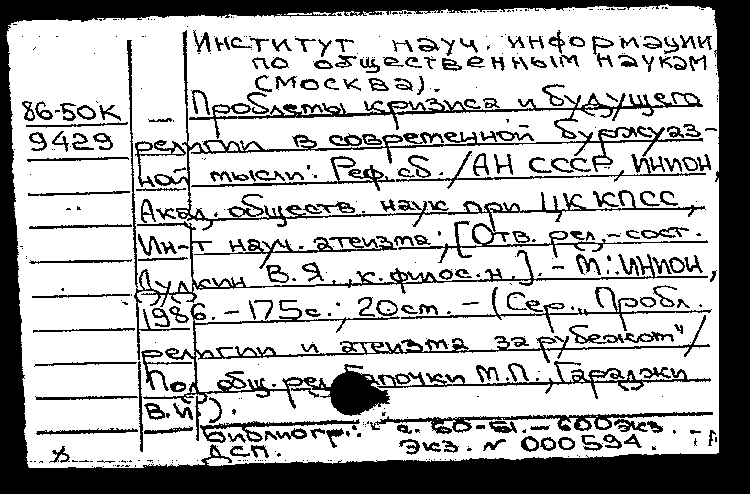 Институт науч. информации
по общественным наукам
(Москва).
86-50к
Проблемы кризиса и будущего
9429
религии в современной буржуаз-
ной мысли: Реф. сб. / АН СССР, ИНИОН,
Акад. обществ. наук при ЦК КПСС,
Ин-т науч. атеизма; [Отв. ред.-сост.
В.Я., к. филос. н.]. - М.: ИНИОН,
1986. - 175с.; 20см. - (Сер. „Пробл.
религии и атеизма за рубежом" /
Под общ. ред. М.П., Гараджи
В.И.).
Библиогр.: с. 60-61. - 600 экз.
ДСП. экз. № 000594.